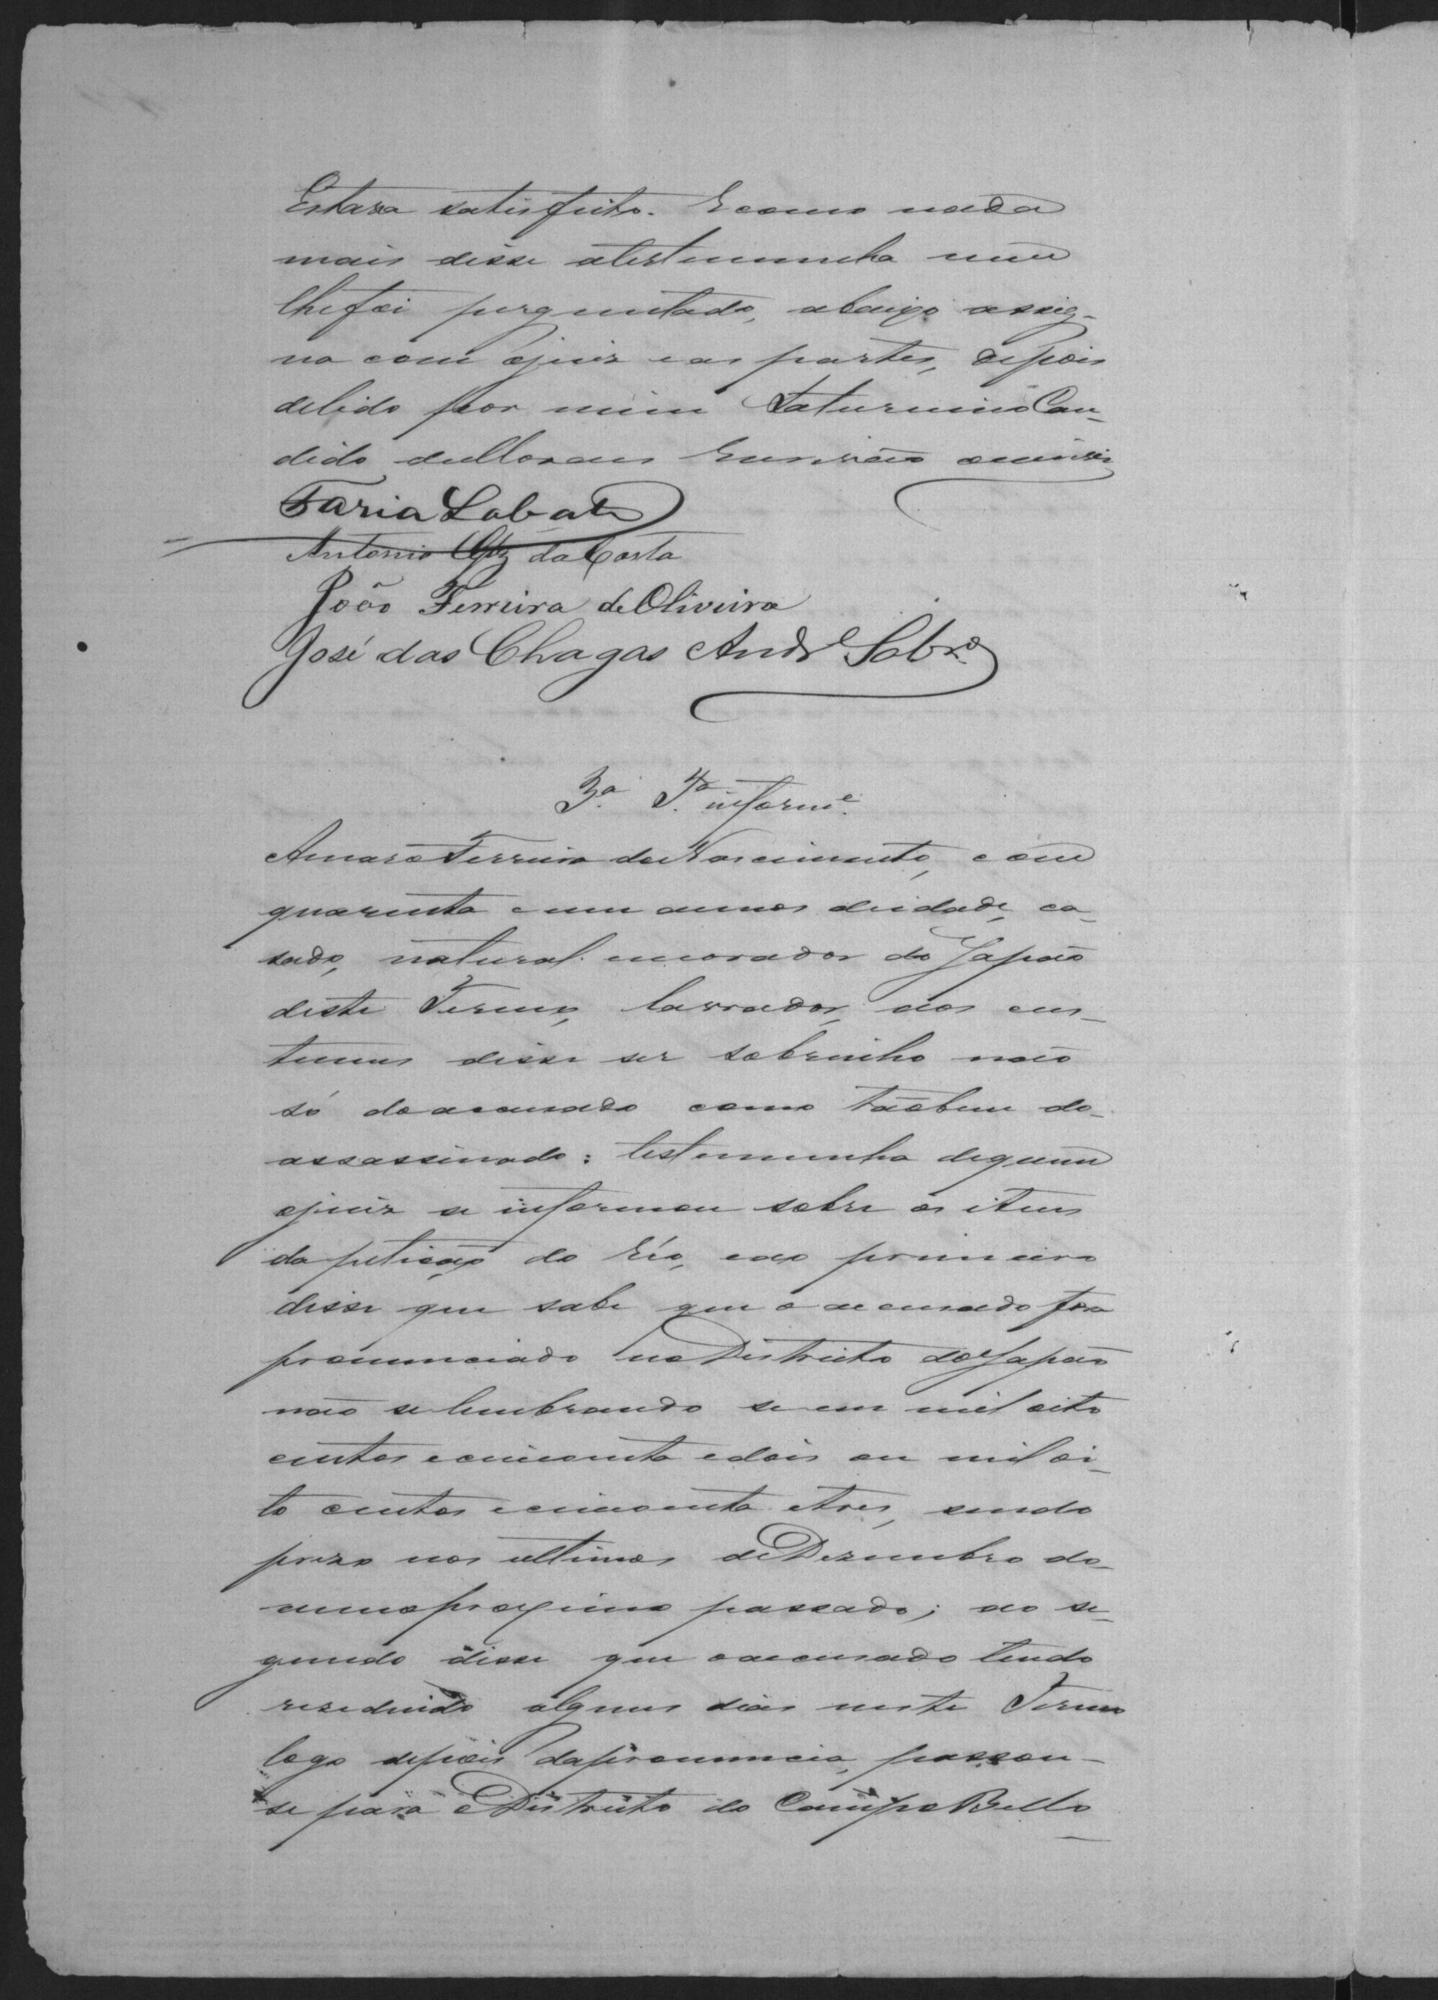 Estava satisfeito. E como nada
mais disse atestemunha nem
lhefoi perguntado, abaixo assig-
na com ojuiz eas partes, depois
delido por mim Saturnino Can-
dido deMoraes Escrivão oescrevi
Faria Lobato
Antonio da Costa
João Ferreira de Oliveira
José das Chagas Andre Sobro
3ª Tª informe
Amaro Ferreira do Nascimento, com
quarenta e um annos deidade, ca-
sado, natural emorador do Japão
deste Termo, lavrador, aos cus-
tumes disse ser sobrinho não
só doacusado como tãobem do
assassinado: testemunha dequem
ojuiz se informou sobre os itens
da petição do Réo, eao primeiro
disse que sabe que o acusado fora
pronunciado no Districto do Japão
não se lembrando se em mil oito
centos ecincoenta edois ou mil oi-
to centos ecincoenta etres, sendo
prezo nos ultimos deDezembro do
annoproximo passado; ao se-
gundo disse que oacusado tendo
rezedindo alguns dias neste Termo
logo depois dapronuncia, passou-
se para oDistricto do Campo Bello